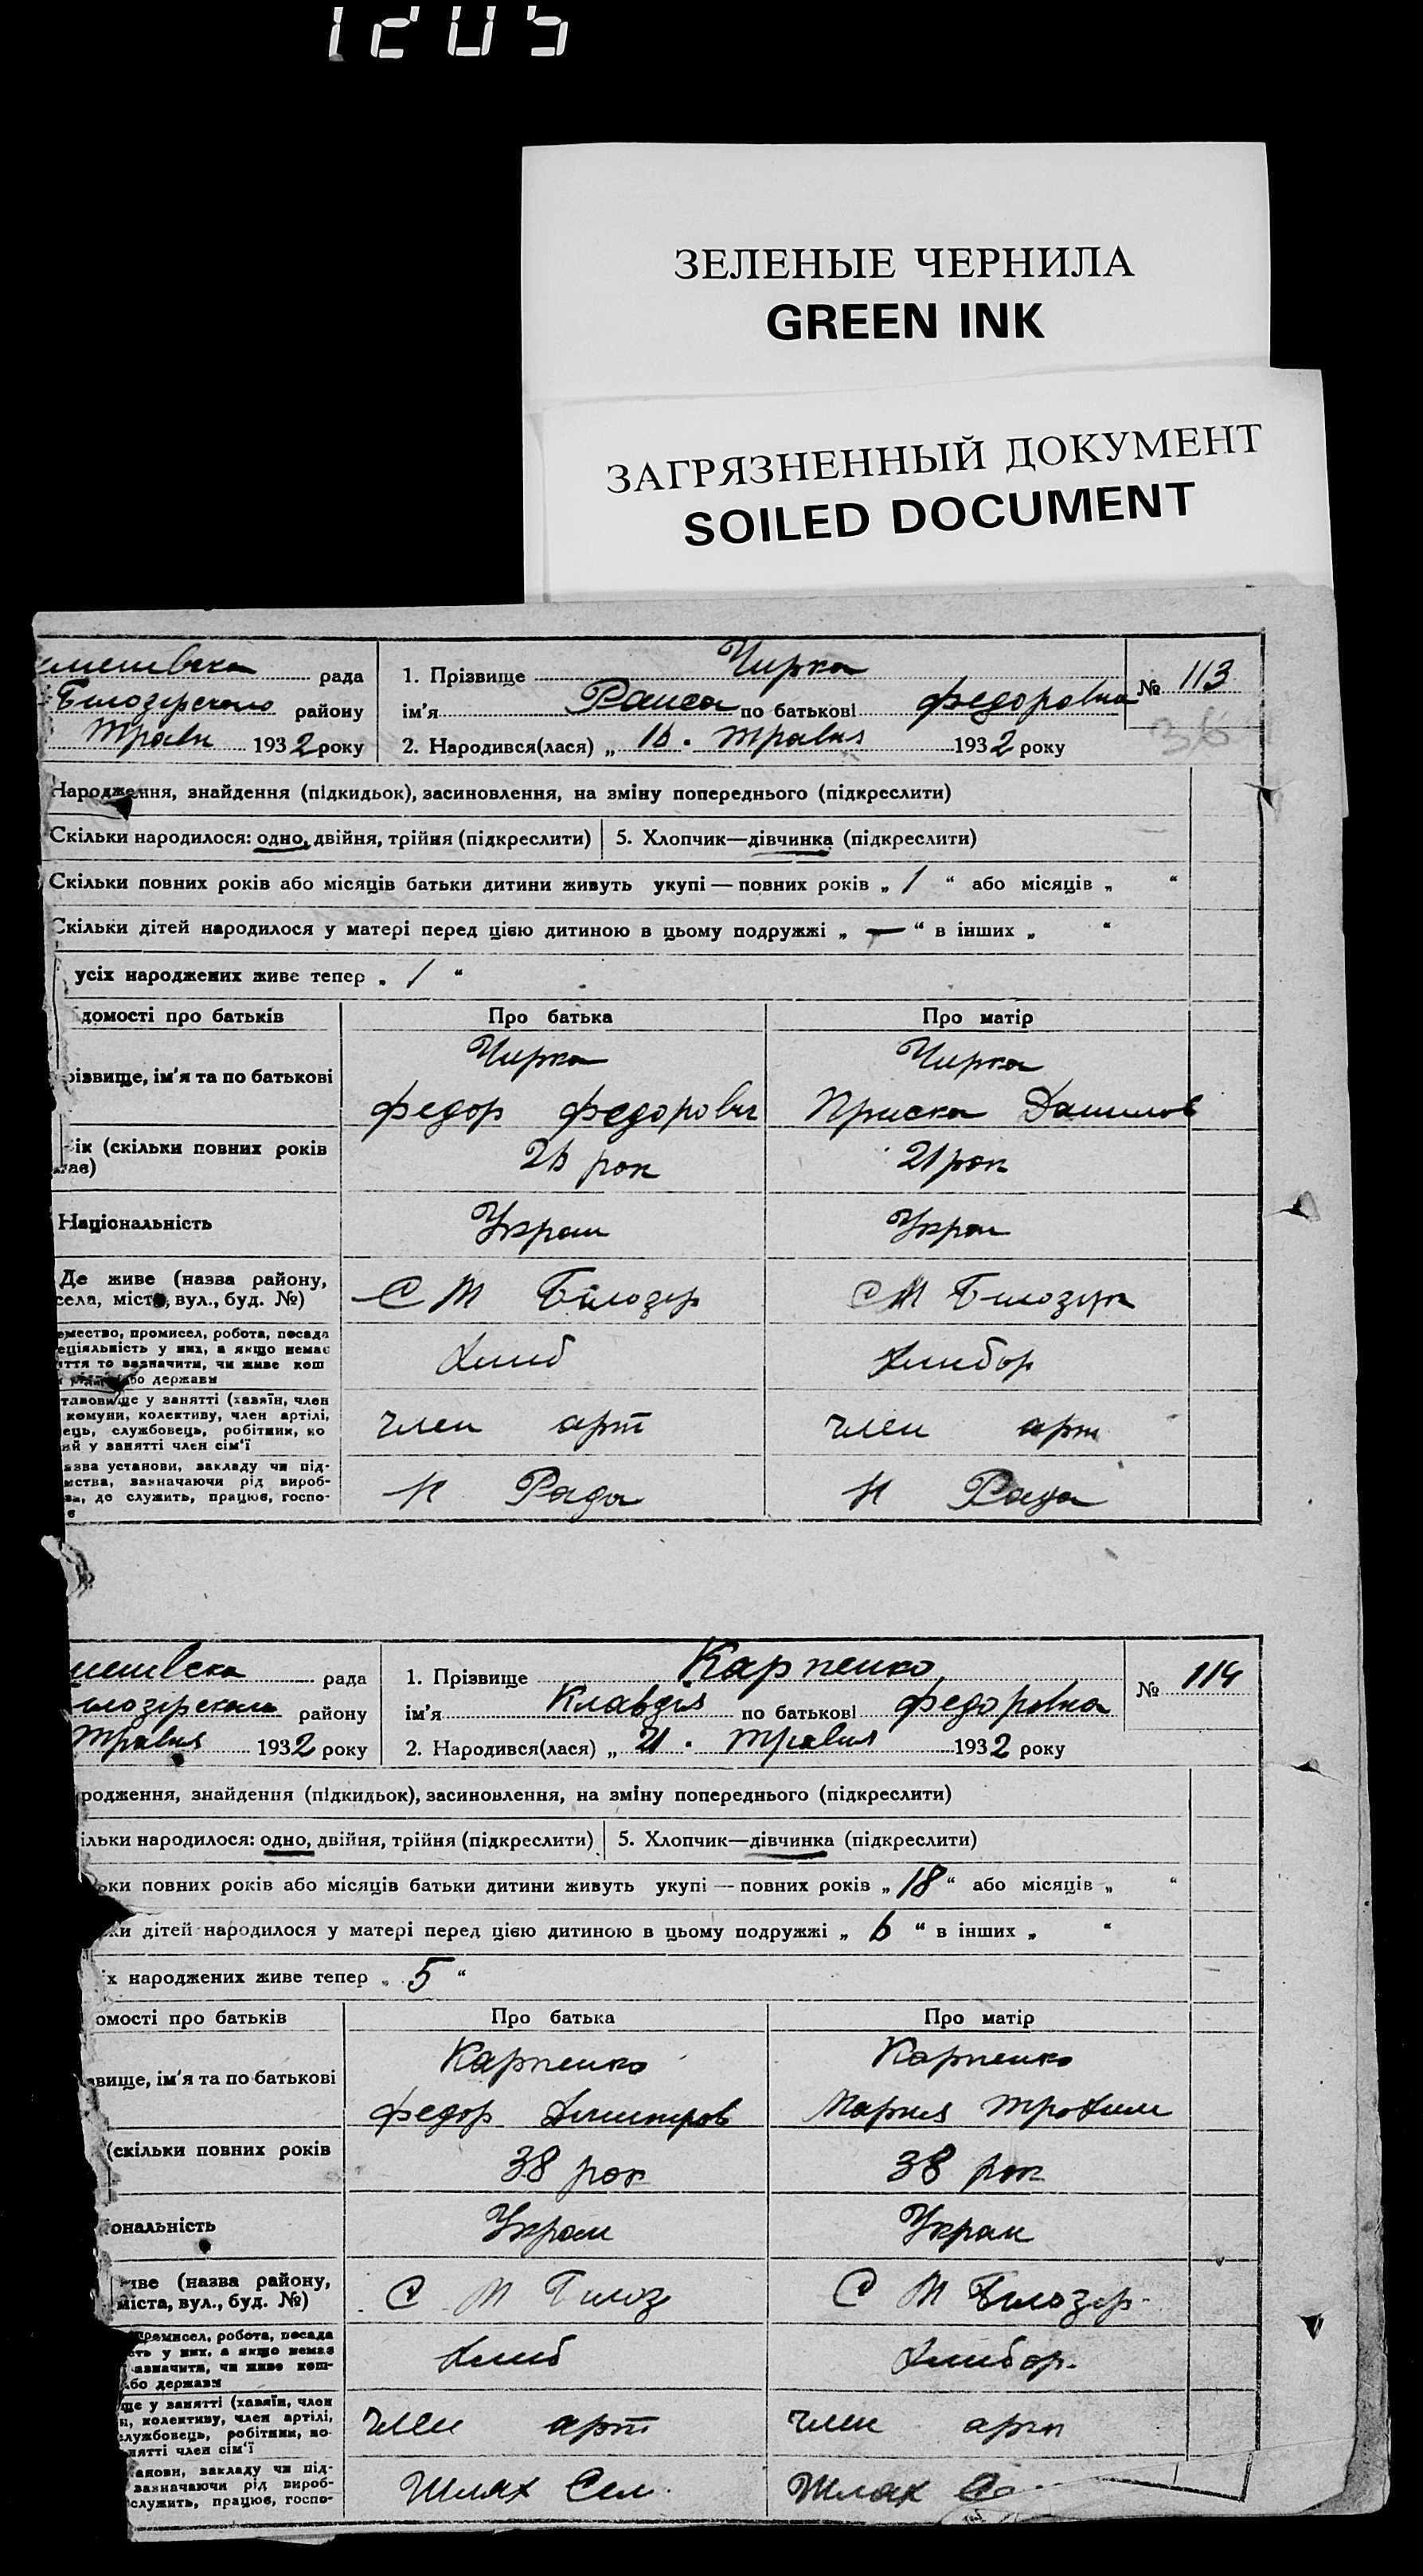 1205
ЗЕЛЕНЫЕ ЧЕРНИЛА
GREEN INK
ЗАГРЯЗНЕННЫЙ ДОКУМЕНТ
SOILED DOCUMENT
рада
Білозірского району
Травн 1932 року
1. Прізвище Чирка
ім'я Раиса по батькові Федоровна
2. Народився(лася) „ 16 " Травня 1932 року
№ 113
36
Народження, знайдення (підкидьок), засиновлення, на зміну попереднього (підкреслити)
Скільки народилося: одно, двійня, трійня (підкреслити) 5. Хлопчик—дівчинка (підкреслити)
Скільки повних років або місяців батьки дитини живуть укупі — повних років „ 1 “ або місяців „ “
Скільки дітей народилося у матері перед цією дитиною в цьому подружжі „ — “ в інших „ “
усіх народжених живе тепер „ 1 “
домості про батьків Про батька Про матір
різвище, ім'я та по батькові
Чирка
Федор Федорович
Чирка
Приска Данилов
ік (скільки повних років
ає)
26 рок
21 рок
Національність
Украи
Украи
Де живе (назва району,
села, міста, вул., буд. №)
С М Білозер
С М Билозер
емество, промисел, робота, посада
еціяльність у них, а якщо немає
яття то зазначити, чи живе кош
або держави
Хлиб
Хлибор
тановище у занятті (хазяїн, член
комуни, колективу, член артілі,
ець, службовець, робітник, ко
ий у занятті член сім'ї
член арт
член арт
азва установи, закладу чи під-
мства, зазначаючи рід вироб-
ва, де служить, працює, госпо-
є
Н Рада
Н Рада
рада
ілозірского району
Травня 1932 року
1. Прізвище Карпенко
ім'я Клавдія по батькові Федоровна
2. Народився(лася) „ 21 " Травня 1932 року
№ 114
родження, знайдення (підкидьок), засиновлення, на зміну попереднього (підкреслити)
ільки народилося: одно, двійня, трійня (підкреслити) 5. Хлопчик—дівчинка (підкреслити)
ьки повних років або місяців батьки дитини живуть укупі — повних років „ 18 “ або місяців „ “
ки дітей народилося у матері перед цією дитиною в цьому подружжі „ 6 “ в інших „ “
іх народжених живе тепер „ 5 “
омості про батьків Про батька Про матір
звище, ім'я та по батькові
Карпенко
Федор Дмитров
Карпенко
Мария Трохим
(скільки повних років
38 рок
38 рок
іональність
Украи
Украи
живе (назва району,
міста, вул., буд. №)
С М Билоз
С М Билозер
промисел, робота, посада
сть у них, а якщо немає
азначити, чи живе кош-
або держави
Хлиб
Хлибор.
ще у занятті (хазяїн, член
и, колективу, член артілі,
службовець, робітник, по-
нятті член сім'ї
член арт
член арт
анови, закладу чи під-
зазначаючи рід вироб-
служить, працює, госпо-
Шлях Сел.
Шлях